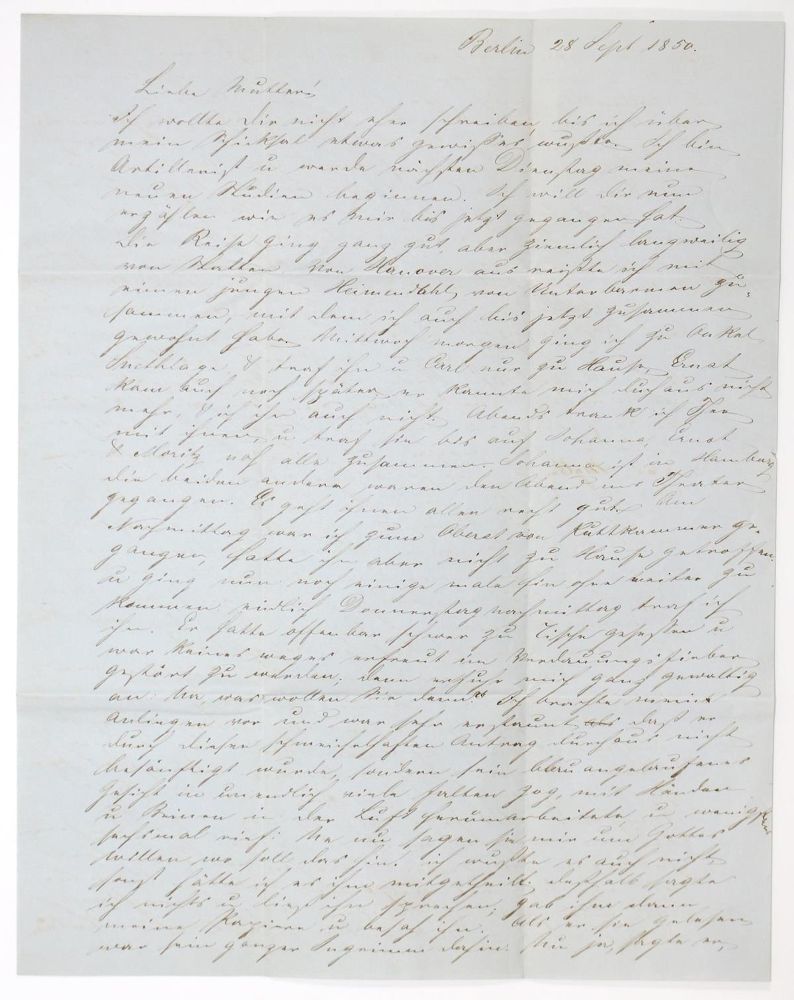 Berlin 28 Sept 1850.
Liebe Mutter!
Ich wollte Dir nicht eher schreiben, bis ich über
mein Schicksal etwas gewisses wußte. Ich bin
Artillerist u werde nächsten Dienstag meine
neuen Studien beginnen. Ich will Dir nun
erzählen wie es mir bis jetzt gegangen hat.
Die Reise ging ganz gut, aber ziemlich langweilig
von Statten. Von Hanover aus reißte ich mit
einem jungen Heimendahl, von Unterbarmen zu-
sammen, mit dem ich auch bis jetzt zusammen
gewohnt habe. Mittwoch morgen ging ich zu Onkel
Snethlage & traf ihn u Carl nur zu Hause, Ernst
kam auch noch später, er kannte mich durchaus nicht
mehr, & ich ihn auch nicht. Abends trank ich Thee
mit ihnen, u traf sie bis auf Johanna, Ernst
& Moritz noch alle zusammen. Johanna ist in Hamburg
die beiden andern waren den Abend ins Theater
gegangen. Es geht ihnen allen recht gut. Am
Nachmittag war ich zum Oberst von Puttkammer ge-
gangen, hatte ihn aber nicht zu Hause getroffen.
u ging nun noch einige male hin ohne weiter zu
kommen, endlich Donnerstag nachmittag traf ich
ihn. Er hatte offenbar schwer zu Tische gesessen u
war keines weges erfreut im Verdauungsfieber
gestört zu werden; denn er fuhr mich ganz gewaltig
an: Na, was wollen Sie denn? Ich brachte mein
Anliegen vor und war sehr erstaunt daß er
durch diesen schmeichelhaften Antrag durchaus nicht
besänftigt wurde, sondern sein blau angelaufenes
Gesicht in unendlich viele Falten zog, mit Händen
u Beinen in der Luft herumarbeitete u wenigstens
sechsmal rief: Na nu sagen sie mir um Gottes
willen, wo soll das hin. ich wußte es auch nicht,
sonst hätte ich es ihm mitgetheilt, deßhalb sagte
ich nichts u ließ ihn sprechen; gab ihm dann
meine Papiere u besah ihn. Als er sie gelesen
war sein ganzer Ingrimm dahin. Nu ja, sagte er,